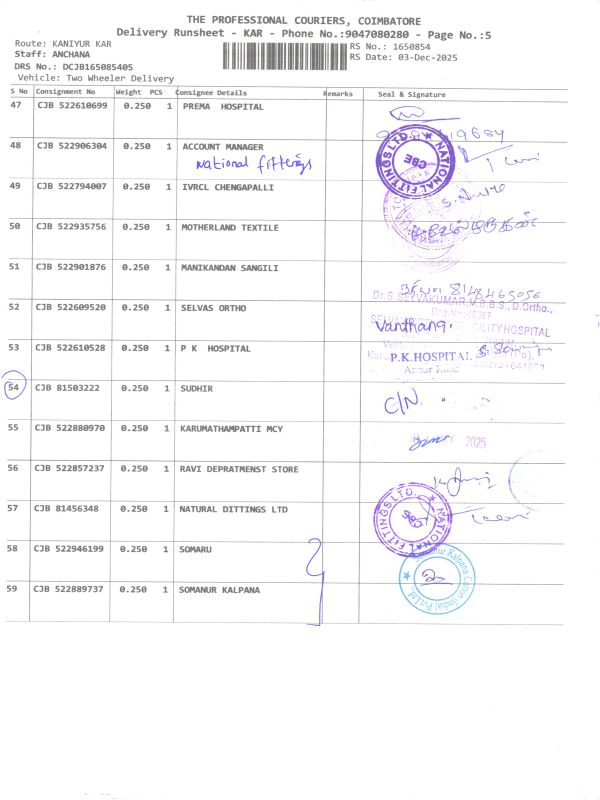 THE PROFESSIONAL COURIERS, COIMBATORE
Delivery Runsheet - KAR - Phone No.:9047080280 - Page No.:5
Route: KANIYUR KAR
RS No.: 1650854
Staff: ANCHANA
RS Date: 03-Dec-2025
DRS No.: DCJB165085405
Vehicle: Two Wheeler Delivery
S No Consignment No Weight PCS Consignee Details Remarks Seal & Signature
47 CJB 522610699 0.250 1 PREMA HOSPITAL
48 CJB 522906304 0.250 1 ACCOUNT MANAGER
National fittings
NATIONAL FITTINGS LTD. CBE
49 CJB 522794007 0.250 1 IVRCL CHENGAPALLI
50 CJB 522935756 0.250 1 MOTHERLAND TEXTILE
51 CJB 522901876 0.250 1 MANIKANDAN SANGILI
8148465056
Dr.S.SELVAKUMAR,M.B.B.S.,D.Ortho.,
52 CJB 522609520 0.250 1 SELVAS ORTHO
Vanthana
HOSPITAL
53 CJB 522610528 0.250 1 P K HOSPITAL
P.K.HOSPITAL
Annur Road
54 CJB 81503222 0.250 1 SUDHIR
C/N
55 CJB 522880970 0.250 1 KARUMATHAMPATTI MCY
2025
56 CJB 522857237 0.250 1 RAVI DEPRATMENST STORE
57 CJB 81456348 0.250 1 NATURAL DITTINGS LTD
NATIONAL FITTINGS LTD.
58 CJB 522946199 0.250 1 SOMARU
59 CJB 522889737 0.250 1 SOMANUR KALPANA
Somanur Kalpana Cotton (India) Pvt.Ltd.